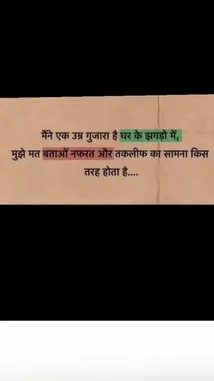 मैंने एक उम्र गुजारा है घर के झगड़ो में,
मुझे मत बताओं नफरत और तकलीफ का सामना किस
तरह होता है....